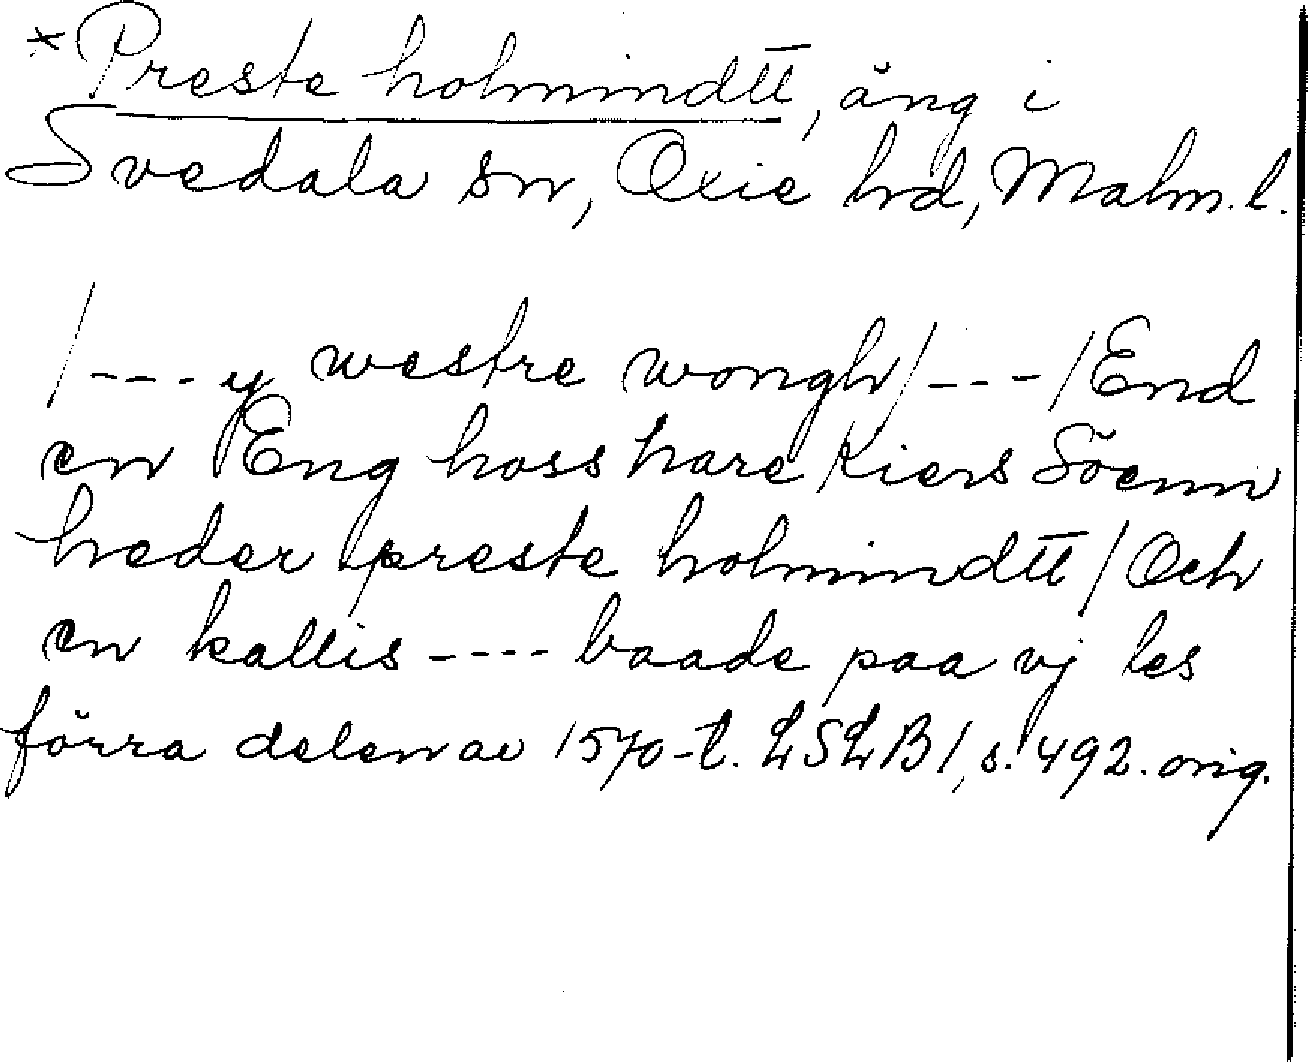 *Preste holmindtt, äng i
Svedala sn, Oxie hd, Malm. l.
/---y westre wongh/---/End
en Eng hoss hare Kiers Söenn
heder preste holmindtt/Och
en kallis---- baade paa vj les
förra delen av 1570-t. LSLB1, s. 492. orig.